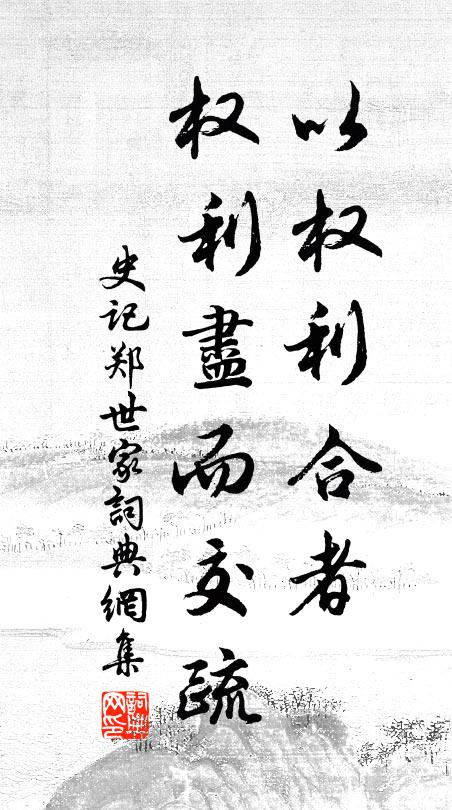 以权利合者
权利盡而交疏
史记郑世家詞典網集